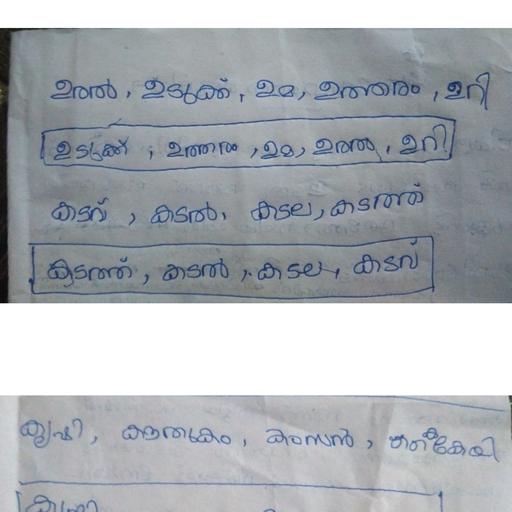 ഉരൽ, ഉടുക്ക്, ഉമ, ഉത്തരം, ഉറി
ഉടുക്ക്, ഉത്തരം, ഉമ, ഉറി
കടവ്, കടൽ, കടല, കടത്ത്
കടത്ത്, കടൽ, കടല, കടവ്
കൃഷി, കൗതുകം, കംസൻ, കൈകേയി